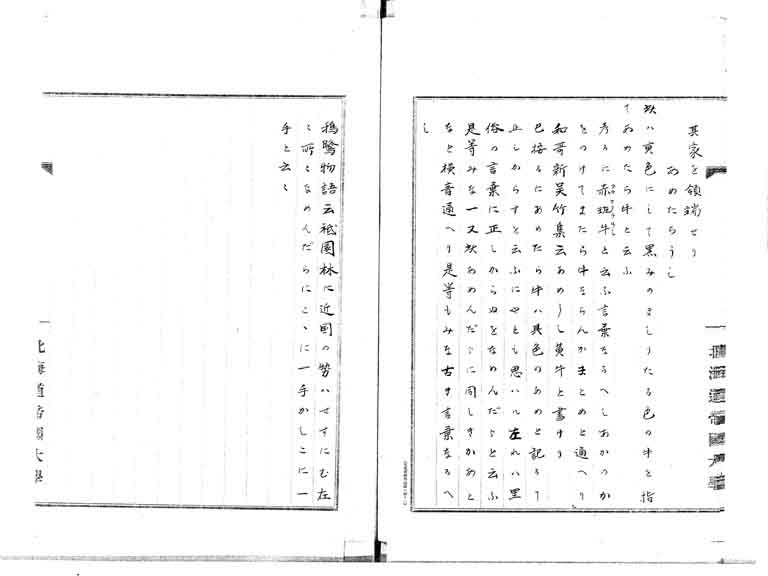 其家を領端せり
あめたらうし
玖ハ黄色にして黒みのましりたる色の牛を指
てあめたら牛と云ふ
考るに赤斑牛と云ふ言葉なるへしあかのか
をつけてまたら牛をらんかまとめと通へり
和哥新呉竹集云あめうし黄牛と書けり
已接るにあめたら牛ハ具色のあめと記るり
正しからすと云ふにやとも思ハル左れハ里
俗の言葉に正しからぬをなめんだらと云ふ
是等みな一又玖あめんだらに同しきかあと
なと横音通へり是等もみな古き言葉なるへ
し
鴉鷺物語云祗園林に近国の勢ハせすにむ左
々所々なめんだらにこゝに一手かしこに一
手と云々
北海道帝國大學
北海道帝國大學